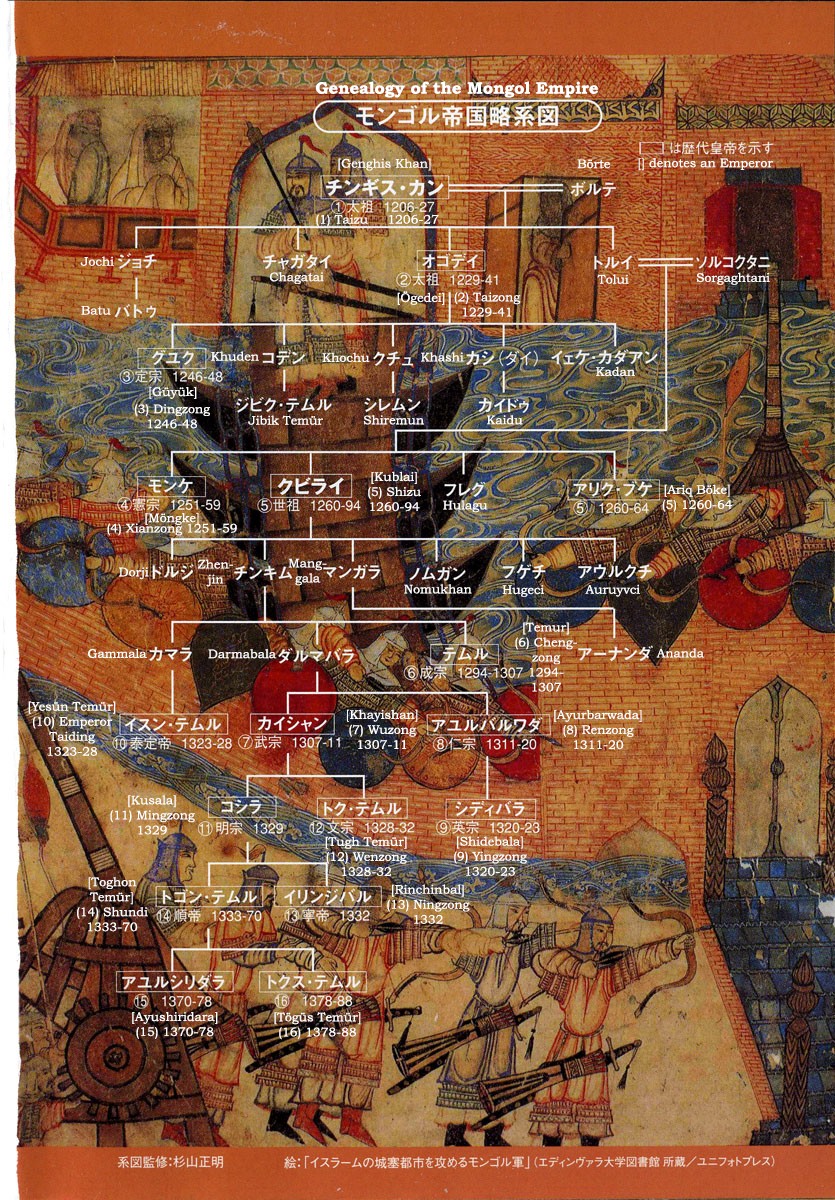 Genealogy of the Mongol Empire
モンゴル帝国略系図
は歴代皇帝を示す
[] denotes an Emperor
[Genghis Khan]
Börte
チンギス・カン
ボルテ
①太祖 1206-27
(1) Taizu 1206-27
Jochi ジョチ
チャガタイ
Chagatai
オゴデイ
②太祖 1229-41
[Ögedei] (2) Taizong
1229-41
トルイ
Tolui
ソルコクタニ
Sorgaghtani
Batu バトゥ
グユク
③定宗 1246-48
[Güyük]
(3) Dingzong
1246-48
Khuden コデン
Khochu クチュ
Khashi カシ(タイ)
イェケ・カダアン
Kadan
ジビク・テムル
Jibik Temür
シレムン
Shiremun
カイドゥ
Kaidu
モンケ
④憲宗 1251-59
[Möngke]
(4) Xianzong 1251-59
クビライ
⑤世祖 1260-94
[Kublai]
(5) Shizu
1260-94
フレグ
Hulagu
アリク・ブケ
⑤ 1260-64
[Ariq Böke]
(5) 1260-64
Dorji ドルジ
Zhen-
jin
チンキム
Mang-
gala
マンガラ
ノムガン
Nomukhan
フゲチ
Hugeci
アウルクチ
Auruyvci
Gammala カマラ
Darmabala ダルマバラ
テムル
⑥成宗 1294-1307
[Temur]
(6) Cheng-
zong
1294-
1307
アーナンダ Ananda
[Yesün Temür]
(10) Emperor
Taiding
1323-28
イスン・テムル
⑩泰定帝 1323-28
カイシャン
⑦武宗 1307-11
[Khayishan]
(7) Wuzong
1307-11
アユルバルワダ
⑧仁宗 1311-20
[Ayurbarwada]
(8) Renzong
1311-20
[Kusala]
(11) Mingzong
1329
コシラ
⑪明宗 1329
トク・テムル
⑫文宗 1328-32
[Tugh Temür]
(12) Wenzong
1328-32
シディバラ
⑨英宗 1320-23
[Shidebala]
(9) Yingzong
1320-23
[Toghon
Temür]
(14) Shundi
1333-70
トゴン・テムル
⑭順帝 1333-70
イリンジバル
⑬寧帝 1332
[Rinchinbal]
(13) Ningzong
1332
アユルシリダラ
⑮ 1370-78
[Ayushiridara]
(15) 1370-78
トクス・テムル
⑯ 1378-88
[Tögüs Temür]
(16) 1378-88
系図監修:杉山正明
絵:「イスラームの城塞都市を攻めるモンゴル軍」(エディンヴァラ大学図書館 所蔵/ユニフォトプレス)